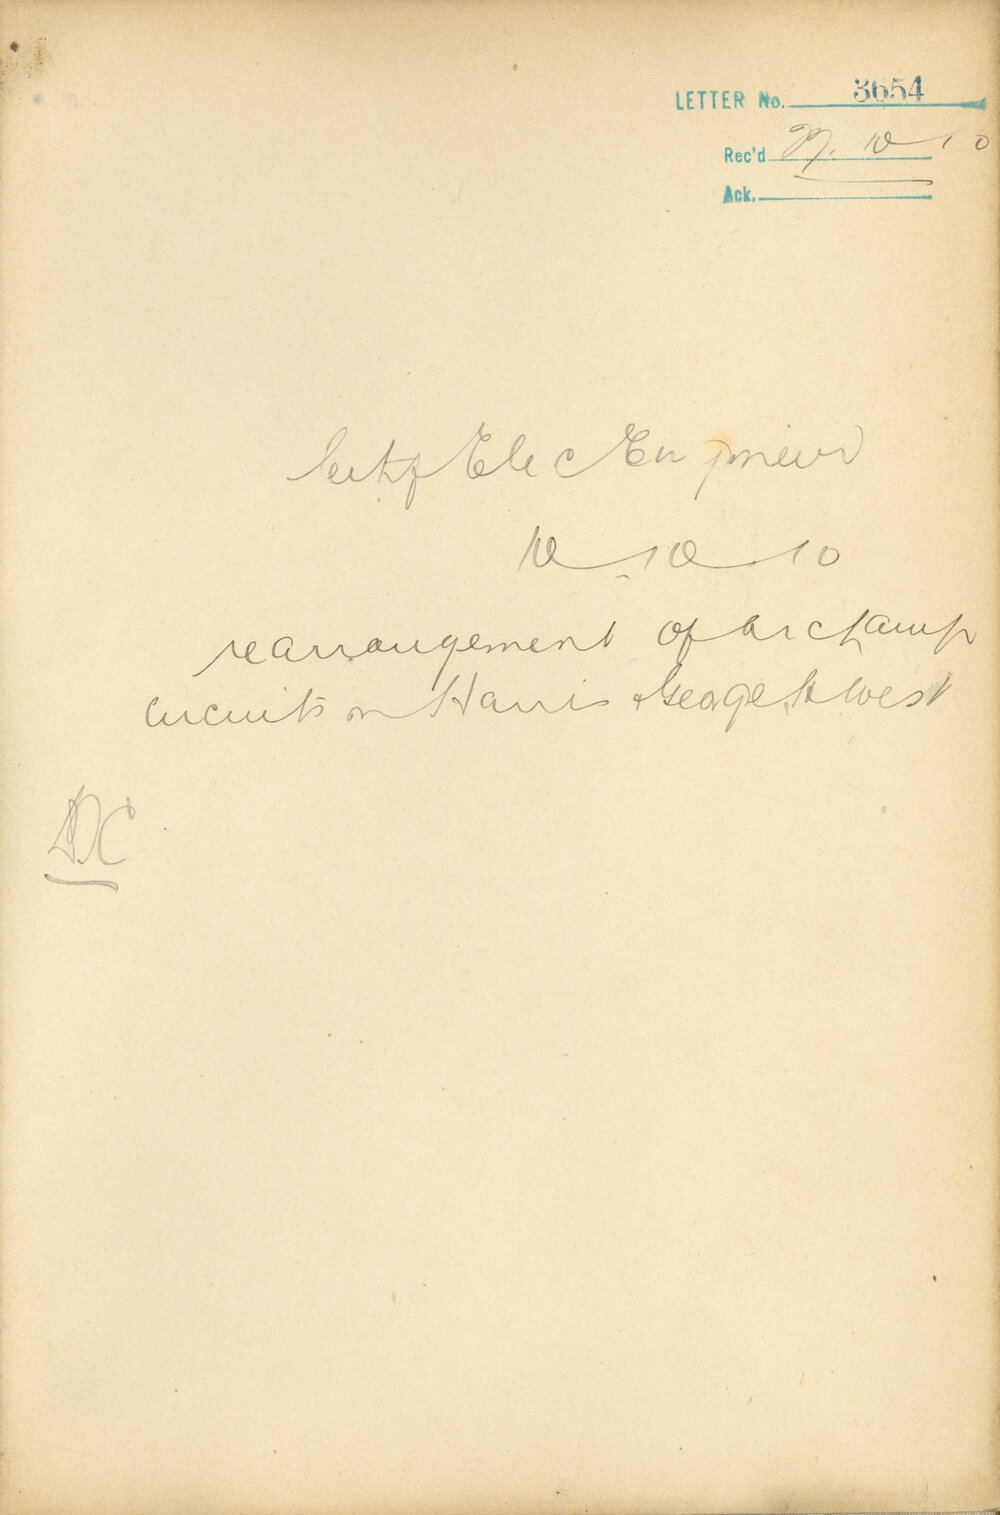 LETTER No. 3654
Rec'd 27. 10 10
Ack.
City Elec Engineer
10 10 10
rearrangement of arc Lamp
circuits on Harris & George St West
DC